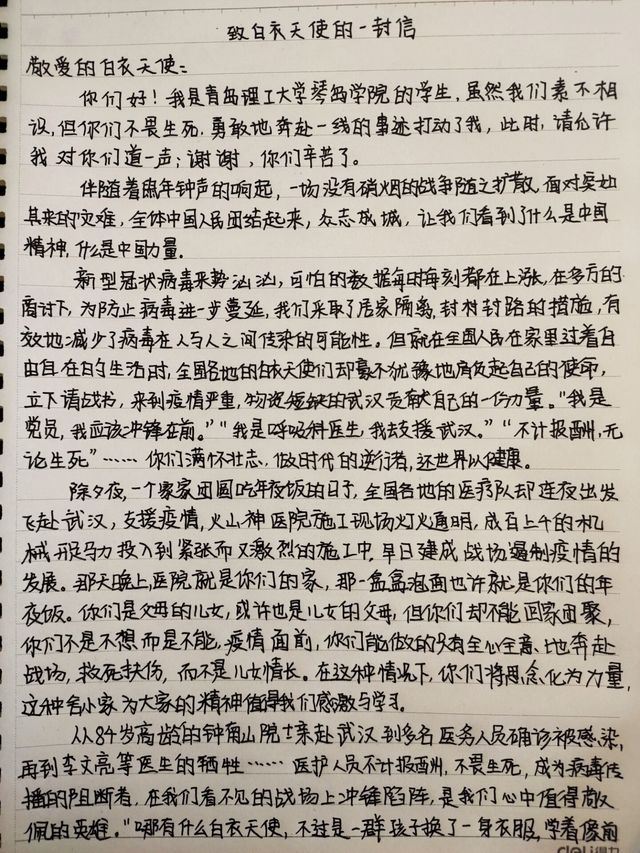 致白衣天使的一封信
敬爱的白衣天使：
你们好！我是青岛理工大学琴岛学院的学生，虽然我们素不相
识，但你们不畏生死，勇敢地奔赴一线的事迹打动了我，此时，请允许
我对你们道一声：谢谢，你们辛苦了。
伴随着鼠年钟声的响起，一场没有硝烟的战争随之扩散，面对突如
其来的灾难，全体中国人民团结起来，众志成城，让我们看到了什么是中国
精神，什么是中国力量。
新型冠状病毒来势汹汹，可怕的数据每时每刻都在上涨，在多方的
商讨下，为防止病毒进一步蔓延，我们采取了居家隔离，封村封路的措施，有
效地减少了病毒在人与人之间传染的可能性。但就在全国人民在家里过着自
由自在的生活时，全国各地的白衣天使们却毫不犹豫地肩负起自己的使命，
立下请战书，来到疫情严重，物资短缺的武汉贡献自己的一份力量。“我是
党员，我应该冲锋在前。”“我是呼吸科医生，我去支援武汉。”“不计报酬，无
论生死”……你们满怀壮志，做时代的逆行者，还世界以健康。
除夕夜，一个家家团圆吃年夜饭的日子，全国各地的医疗队却连夜出发
飞赴武汉，支援疫情，火山神医院施工现场灯火通明，成百上千的机
械开足马力投入到紧张而又激烈的施工中，早日建成战场遏制疫情的
发展。那天晚上，医院就是你们的家，那一盒盒泡面也许就是你们的年
夜饭。你们是父母的儿女，或许也是儿女的父母，但你们却不能回家团聚，
你们不是不想而是不能，疫情面前，你们能做的只有全心全意地奔赴
战场，救死扶伤，而不是儿女情长。在这种情况下，你们将思念化为力量，
这种舍小家为大家的精神值得我们感激与学习。
从84岁高龄的钟南山院士亲赴武汉到多名医务人员确诊被感染，
再到李文亮等医生的牺牲……医护人员不计报酬，不畏生死，成为病毒传
播的阻断者，在我们看不见的战场上冲锋陷阵，是我们心中值得敬
佩的英雄。“哪有什么白衣天使，不过是一群孩子换了一身衣服，学着像前
deli得力